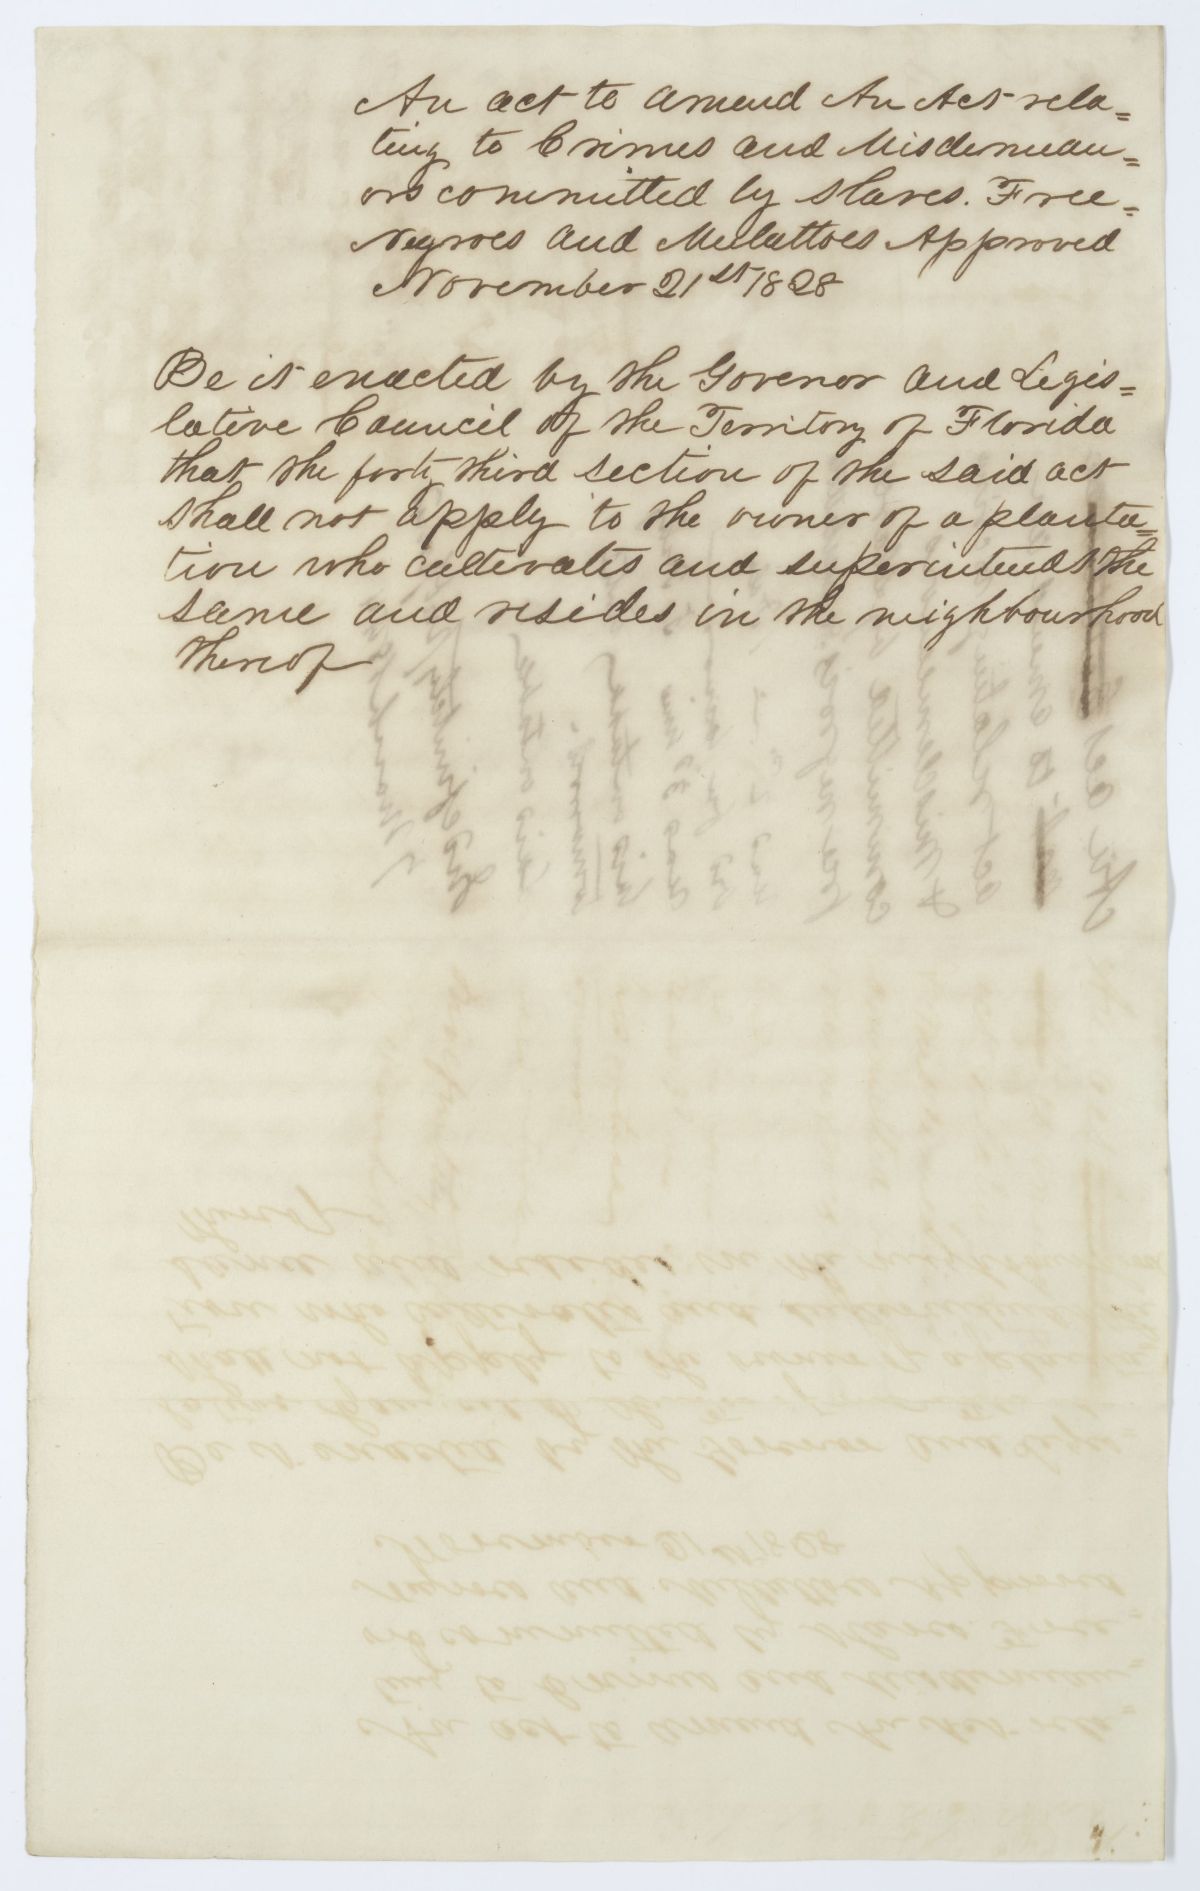 An act to amend An Act rela=
ting to Crimes and Misdemean=
ors committed by slaves. Free=
Negroes and Mulattoes Approved
November 21st 1828
Be it enacted by the Govenor and Legis=
lative Council of the Territory of Florida
that the forty third section of the said act
shall not apply to the owner of a planta=
tion who cultivates and superintends the
same and resides in the neighbourhood
thereof